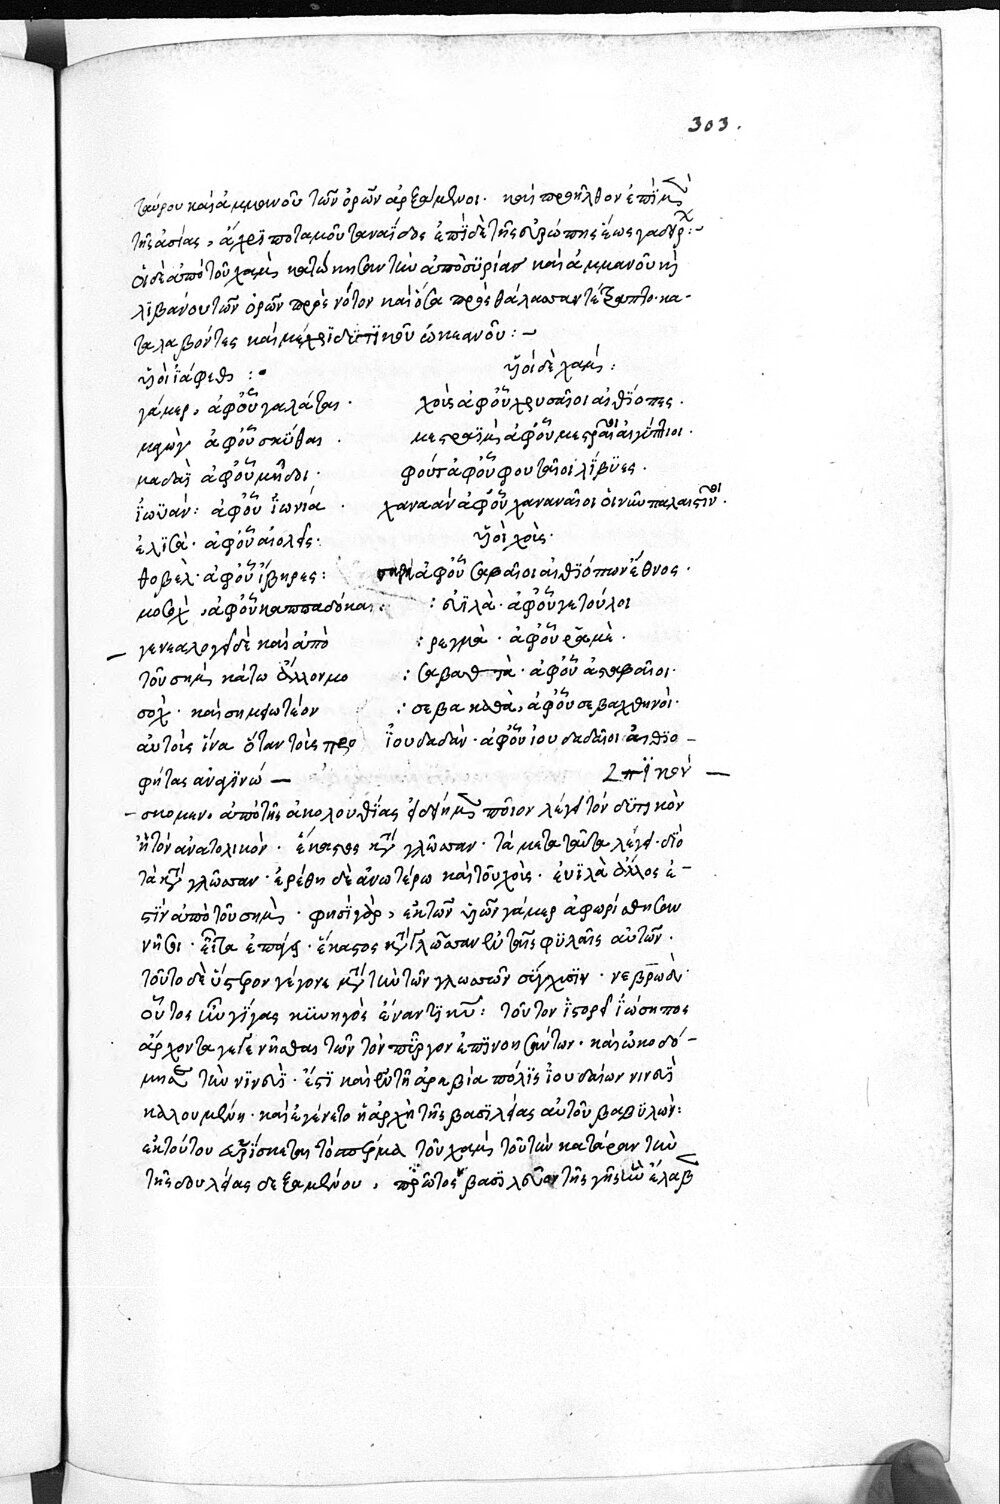 303.
ταύρου καὶ ἀμμανοῦ τῶν ὀρῶν ἀρξάμενοι. καὶ προῆλθον ἐπὶ μὲν
τῆς ἀσίας, ἄχρι ποταμοῦ ταναΐδος ἐπὶ δὲ τῆς εὐρώπης ἕως γαδείρ:
οἱ δὲ ἀπὸ τοῦ χαμὲς κατώκησαν τὴν ἀπὸ συρίας καὶ ἀμμανοῦ κὴ
λιβάνου τῶν ὀρῶν πρὸς νότον καὶ ὅσα πρὸς θάλασσαν τέτραπτο κα-
ταλαβόντες καὶ μέχρι δυτικοῦ ὠκεανοῦ:
υἱοὶ ἰάφεθ:
γάμερ, ἀφ' οὗ γαλάται.
μαγὼγ ἀφ' οὗ σκύθαι.
μαδαῒ ἀφ' οὗ μῆδοι.
ἰωϋάν: ἀφ' οὗ ἰωνία.
ἐλισὰ. ἀφ' οὗ αἰολεῖς:
θοβὲλ. ἀφ' οὗ ἴβηρες:
μοσὸχ, ἀφ' οὗ καππαδόκαι:
γενεαλογεῖ δὲ καὶ ἀπὸ
τοῦ σημὲς κάτω ἄλλον μο
σὸχ. καὶ σημειωτέον
αὐτοὺς ἵνα ὅταν τοὺς προ
φήτας ἀναγινώ
υἱοὶ δὲ χαμές:
χοὺς ἀφ' οὗ χρυσαῖοι αἰθίοπες.
μεσραῒμ ἀφ' οὗ μεσραῖοι αἰγύπτιοι.
φοὺτ ἀφ' οὗ φουταῖοι λίβυες.
χαναὰν ἀφ' οὗ χαναναῖοι οἱ νῦν παλαιστινοί.
υἱοὶ χοὺς.
ἀφ' οὗ σαβαῖοι αἰθιόπων ἔθνος.
: εὐϊλὰ. ἀφ' οὗ γετούλοι
: ρεγμὰ. ἀφ' οὗ
: σαβαθὰ. ἀφ' οὗ ἀσταβαῖοι.
: σεβακαθὰ, ἀφ' οὗ σεβακθηνοί.
ἰουδαδάν. ἀφ' οὗ ἰουδαδαῖοι αἰθιο-
πικὸν
σκομεν, ἀπὸ τῆς ἀκολουθίας εἰδείημεν ποῖον λέγει τὸν δυτικὸν
ἢ τὸν ἀνατολικὸν. ἕκαστος κατὰ γλῶσσαν. τὰ μετὰ ταῦτα λέγει. διὸ
τὰ κατὰ γλῶσσαν. ἐρέθη δὲ ἀνωτέρω καὶ τοῦ χοὺς. ἐυϊλὰ ἄλλος ἐ-
στὶν ἀπὸ τοῦ σημὲς. φησὶ γὰρ, ἐκ τῶν υἱῶν γάμερ ἀφωρίσθησαν
νῆσοι. εἶτα ἐπάγει. ἕκαστος κατὰ γλῶσσαν ἐν ταῖς φυλαῖς αὐτῶν.
τοῦτο δὲ ὕστερον γέγονε μετὰ τὴν τῶν γλωσσῶν σύγχυσιν. νεβρωδὲ
οὗτος ἦν γίγας κυνηγὸς ἐναντίον κυρίου: τοῦτον ἱστορεῖ ἰώσηπος
ἄρχοντα γεγενῆσθαι τῶν τὸν πύργον ἐπινοησάντων. καὶ ὠκοδό-
μησε τὴν νινευῒ. ἔστι καὶ ἐν τῇ ἀραβία πόλις ἰουδαίων νινευῒ
καλουμένη. καὶ ἐγένετο ἡ ἀρχὴ τῆς βασιλείας αὐτοῦ βαβυλών:
ἐκ τούτου εὑρίσκεται τὸ σπέρμα τοῦ χαμὲς τοῦ τὴν κατάραν τὴν
τῆς δουλείας δεξαμένου, πρῶτος βασιλεύων τῆς γῆς ἣν ἔλαβεν